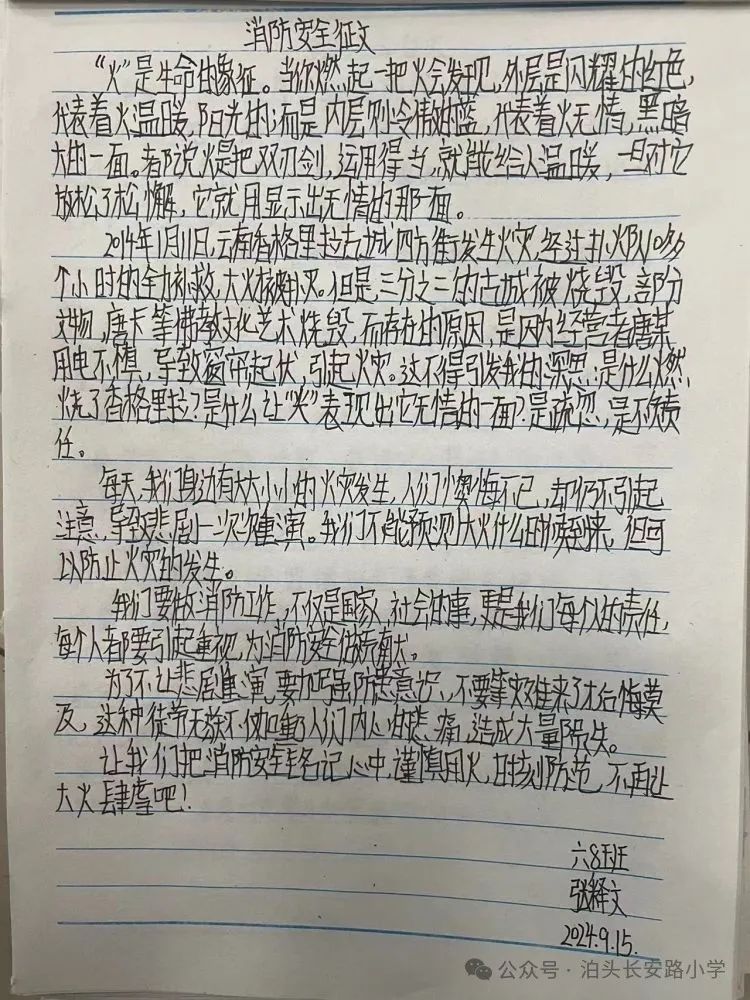 消防安全征文
“火”是生命的象征。当你燃起一把火会发现,外层是闪耀的红色,
代表着火温暖,阳光的;而是内层则冷傲的蓝,代表着火无情,黑暗
大的一面。都说火是把双刃剑,运用得当,就能给人温暖,一旦对它
放松了松懈,它就用显示出无情的那一面。
2014年1月11日,云南香格里拉古城四方街发生火灾,经过扑火队10多
个小时的全力扑救,大火被扑灭。但是,三分之二的古城被烧毁,部分
文物,唐卡等佛教文化艺术烧毁,而存在的原因,是因为经营者唐某
用电不慎,导致窗帘起伏,引起火灾。这不得引发我的深思:是什么燃
烧了香格里拉?是什么让“火”表现出它无情的一面?是疏忽,是不负责
任。
每天,我们身边有大大小小的火灾发生,人们懊悔不已,却仍不引起
注意,导致悲剧一次次重演。我们不能预测大火什么时候到来,但可
以防止火灾的发生。
我们要做消防工作,不仅是国家,社会的事,更是我们每个人的责任,
每个人都要引起重视,为消防安全做贡献。
为了不让悲剧重演,要加强防患意识,不要等灾难来了才后悔莫
及,这种徒劳无获不仅加重了人们内心的悲痛,造成大量损失。
让我们把消防安全铭记心中,谨慎用火,时刻防范,不再让
大火肆虐吧!
六8班
张释文
2024.9.15.
公众号·泊头长安路小学